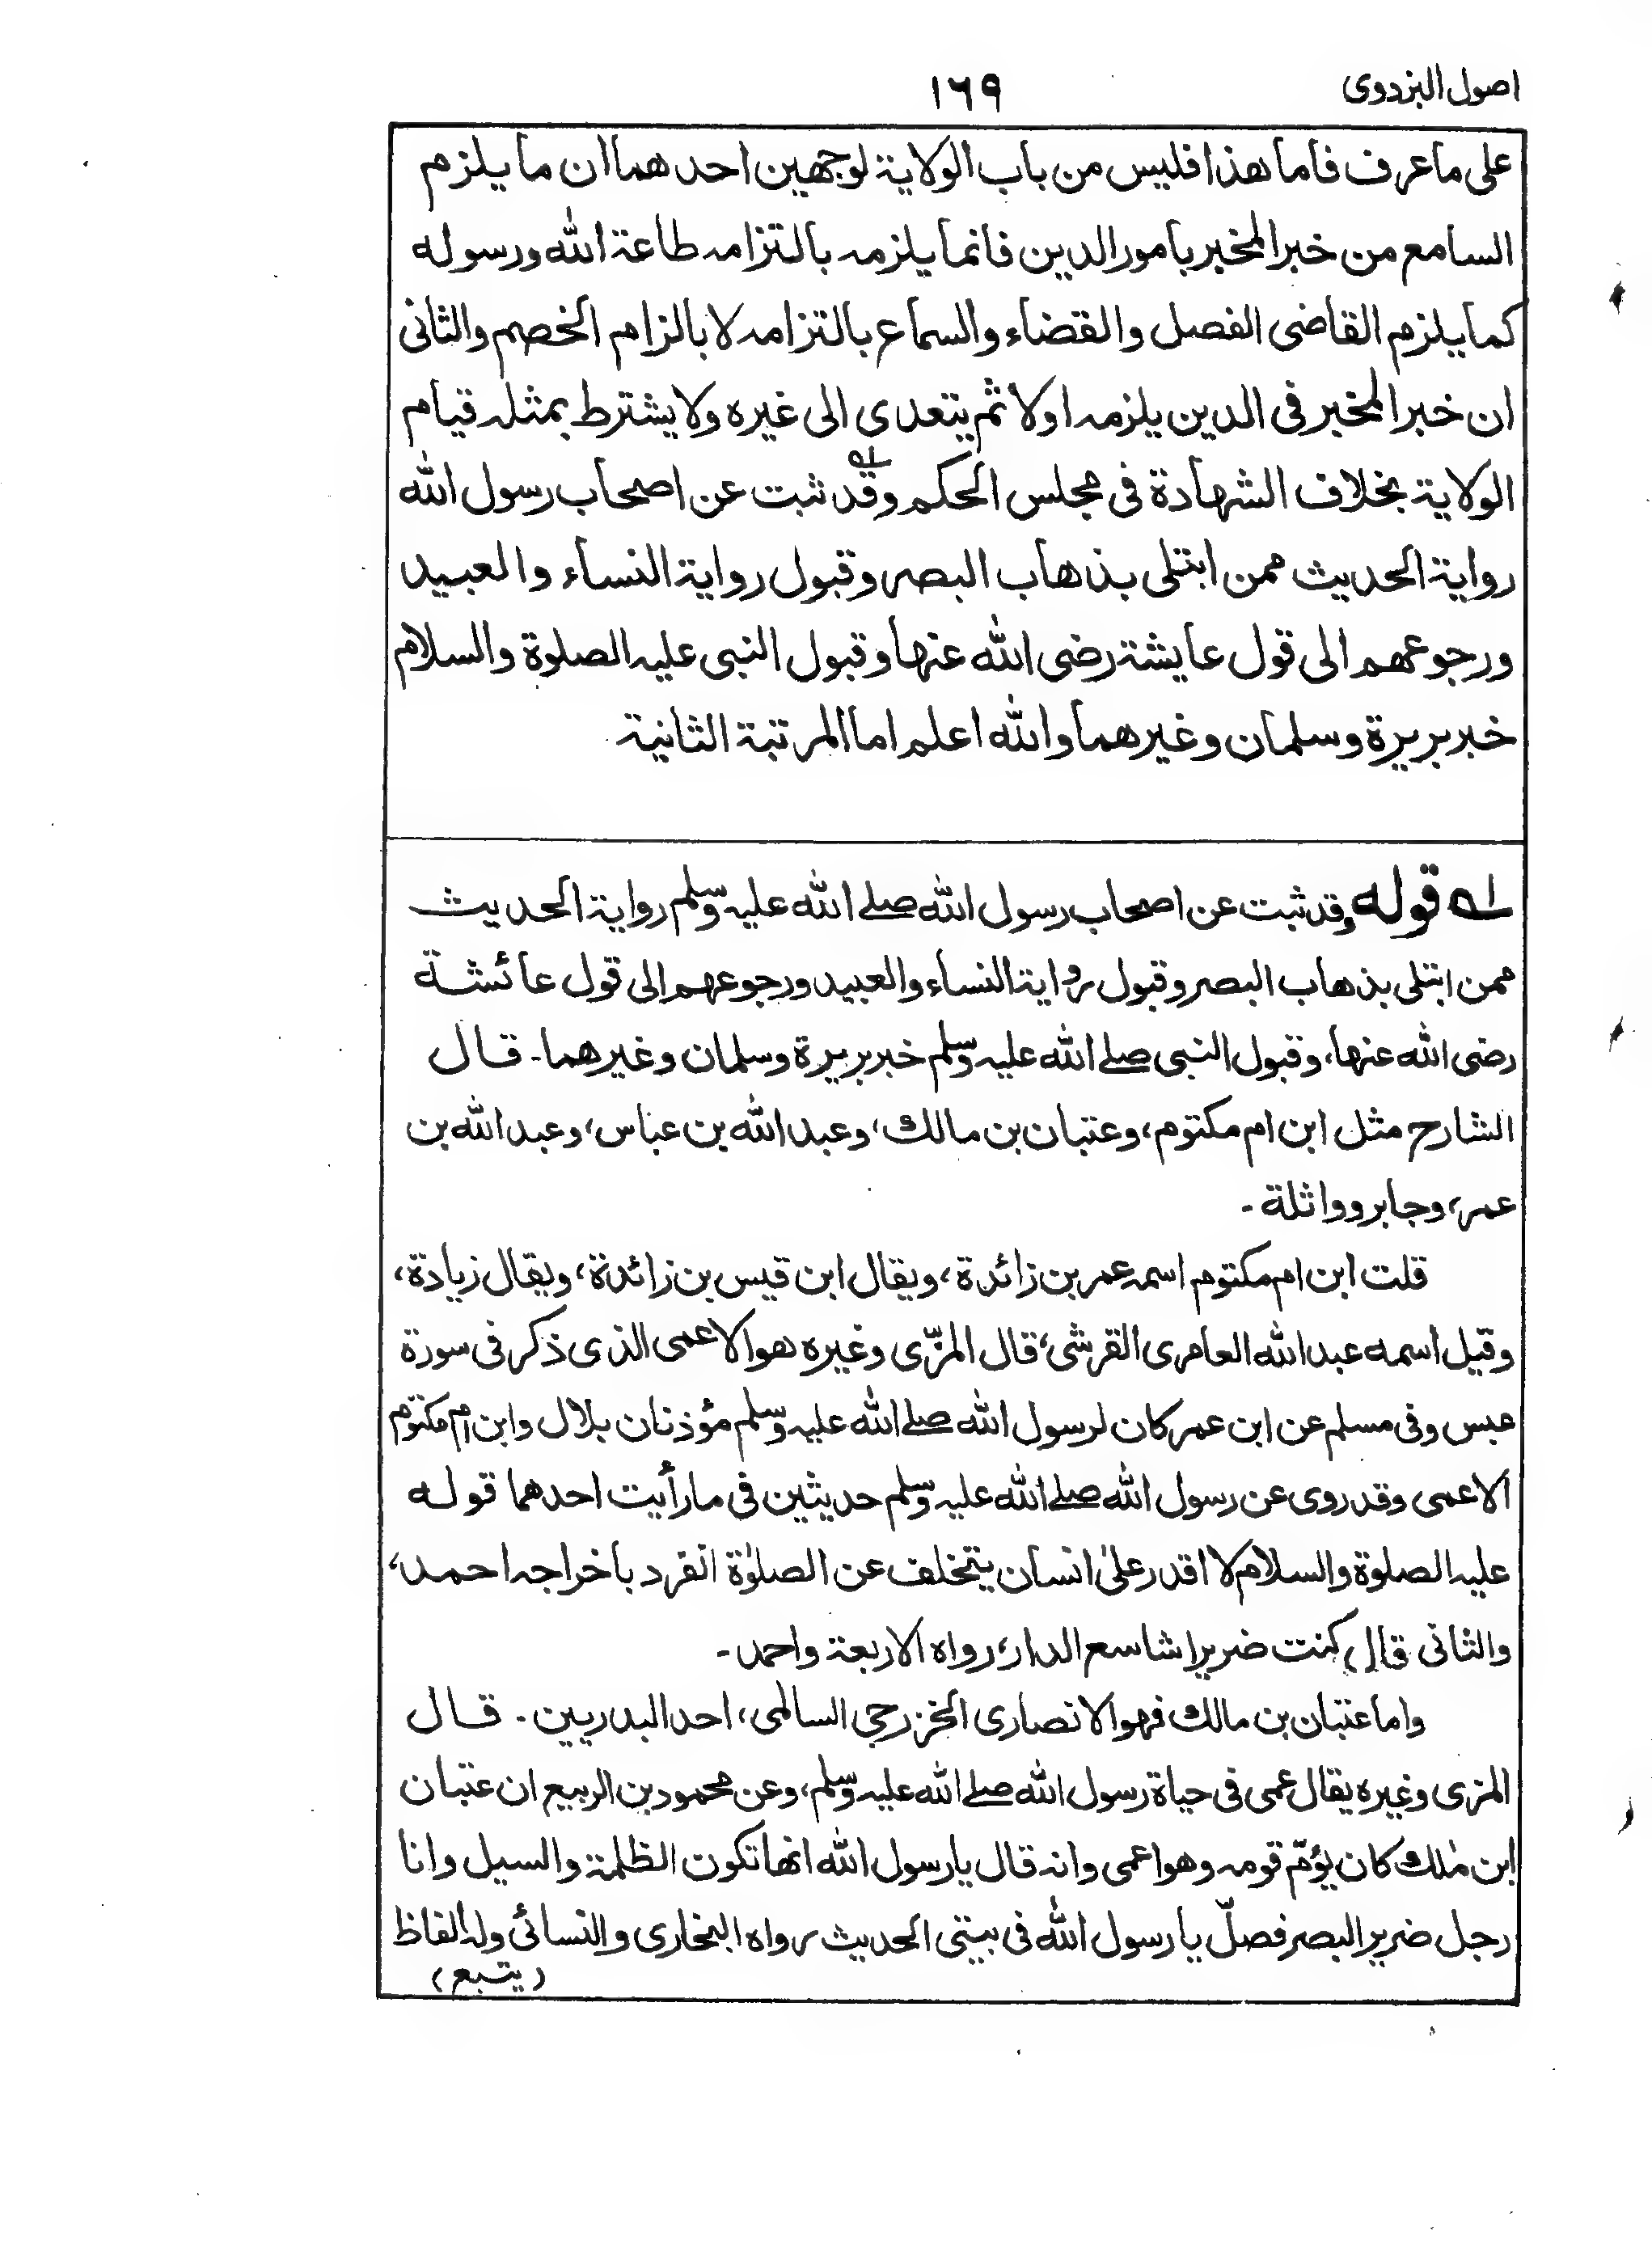 اصول البزدوى
١٦٩
على ما عرف فاما هذا فليس من باب الولاية لوجهين احدهما ان ما يلزم
السامع من خبر المخبر بامور الدين فانما يلزمه بالتزامه طاعة الله ورسوله
كما يلزم القاضى الفصل والقضاء والسماع بالتزامه لا بالزام الخصم والثانى
ان خبر المخبر فى الدين يلزمه اولا ثم يتعدى الى غيره ولا يشترط بمثله قيام
الولاية بخلاف الشهادة فى مجلس الحكم وقد ثبت عن اصحاب رسول الله
رواية الحديث ممن ابتلى بذهاب البصر وقبول رواية النساء والعبيد
ورجوعهم الى قول عايشة رضى الله عنها وقبول النبى عليه الصلوة والسلام
خبر بريرة وسلمان وغيرهما والله اعلم اما المرتبة الثانية
له قوله وقد ثبت عن اصحاب رسول الله صلے الله عليه وسلم رواية الحديث
ممن ابتلى بذهاب البصر وقبول رواية النساء والعبيد ورجوعهم الى قول عائشة
رضى الله عنها، وقبول النبى صلے الله عليه وسلم خبر بريرة وسلمان وغيرهما۔ قال
الشارح مثل ابن ام مكتوم، وعتبان بن مالك، وعبد الله بن عباس، وعبد الله بن
عمر، وجابر وواثلة ۔
قلت ابن ام مكتوم اسمه عمر بن زائدة، ويقال ابن قيس بن زائدة، ويقال زيادة،
وقيل اسمه عبد الله العامرى القرشى، قال المزّى وغيره هو الاعمى الذى ذكر فى سورة
عبس وفى مسلم عن ابن عمر كان لرسول الله صلے الله عليه وسلم مؤذنان بلال وابن ام مكتوم
الاعمى وقد روى عن رسول الله صلے الله عليه وسلم حديثين فى ما رأيت احدهما قوله
عليه الصلوة والسلام لا اقدر على انسان يتخلف عن الصلوٰة انفرد باخراجه احمد،
والثانى قال كنت ضريرا شاسع الدار، رواه الاربعة واحمد ۔
واما عتبان بن مالك فهو الانصارى الخزرجى السالمى، احد البدريين ۔ قال
المزى وغيره يقال عمى فى حياة رسول الله صلے الله عليه وسلم، وعن محمود بن الربيع ان عتبان
ابن مٰلك كان يؤمّ قومه وهو اعمى وانه قال يا رسول الله انها تكون الظلمة والسيل وانا
رجل ضرير البصر فصلّ يا رسول الله فى بيتى الحديث رواه البخارى والنسائى وله الفاظ
(يتبع)